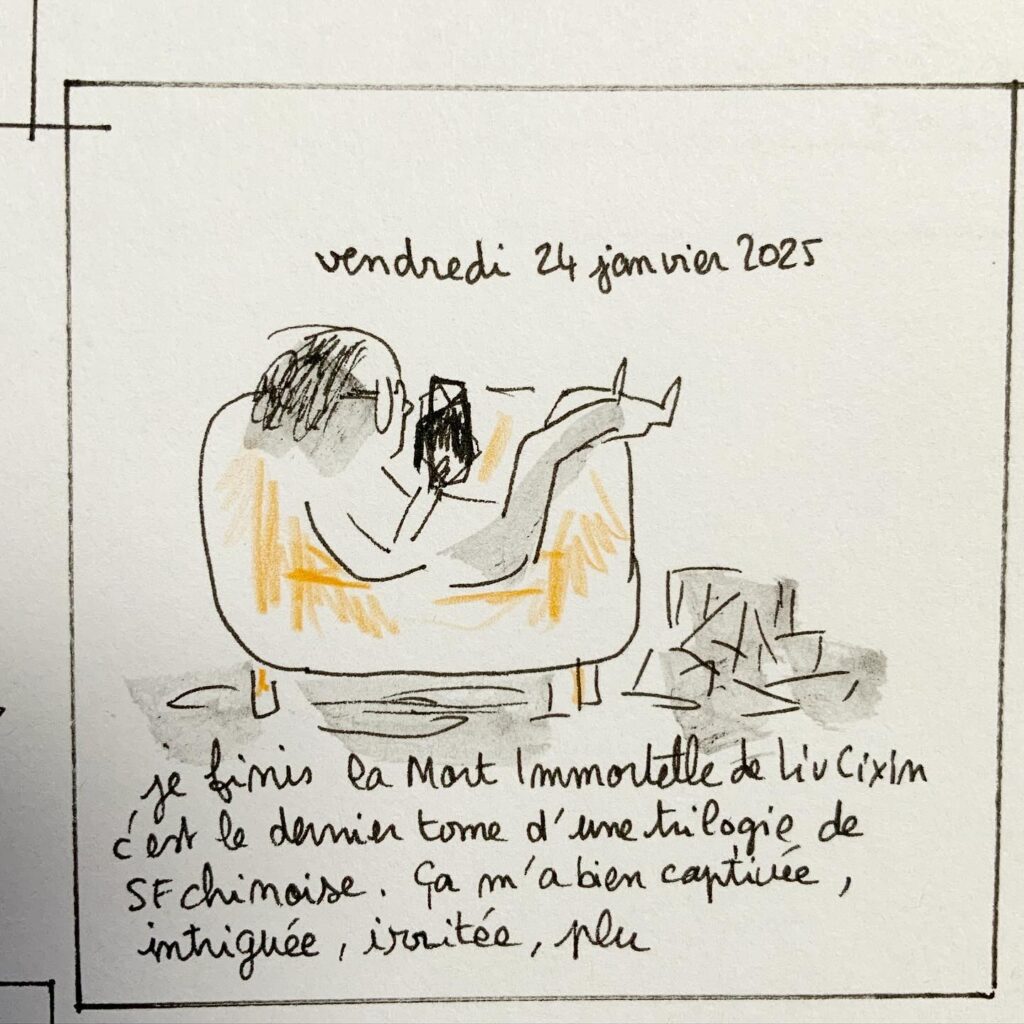 vendredi 24 janvier 2025
je finis la Mort Immortelle de Liu Cixin
c'est le dernier tome d'une trilogie de
SF chinoise. Ça m'a bien captivée,
intriguée, irritée, plu